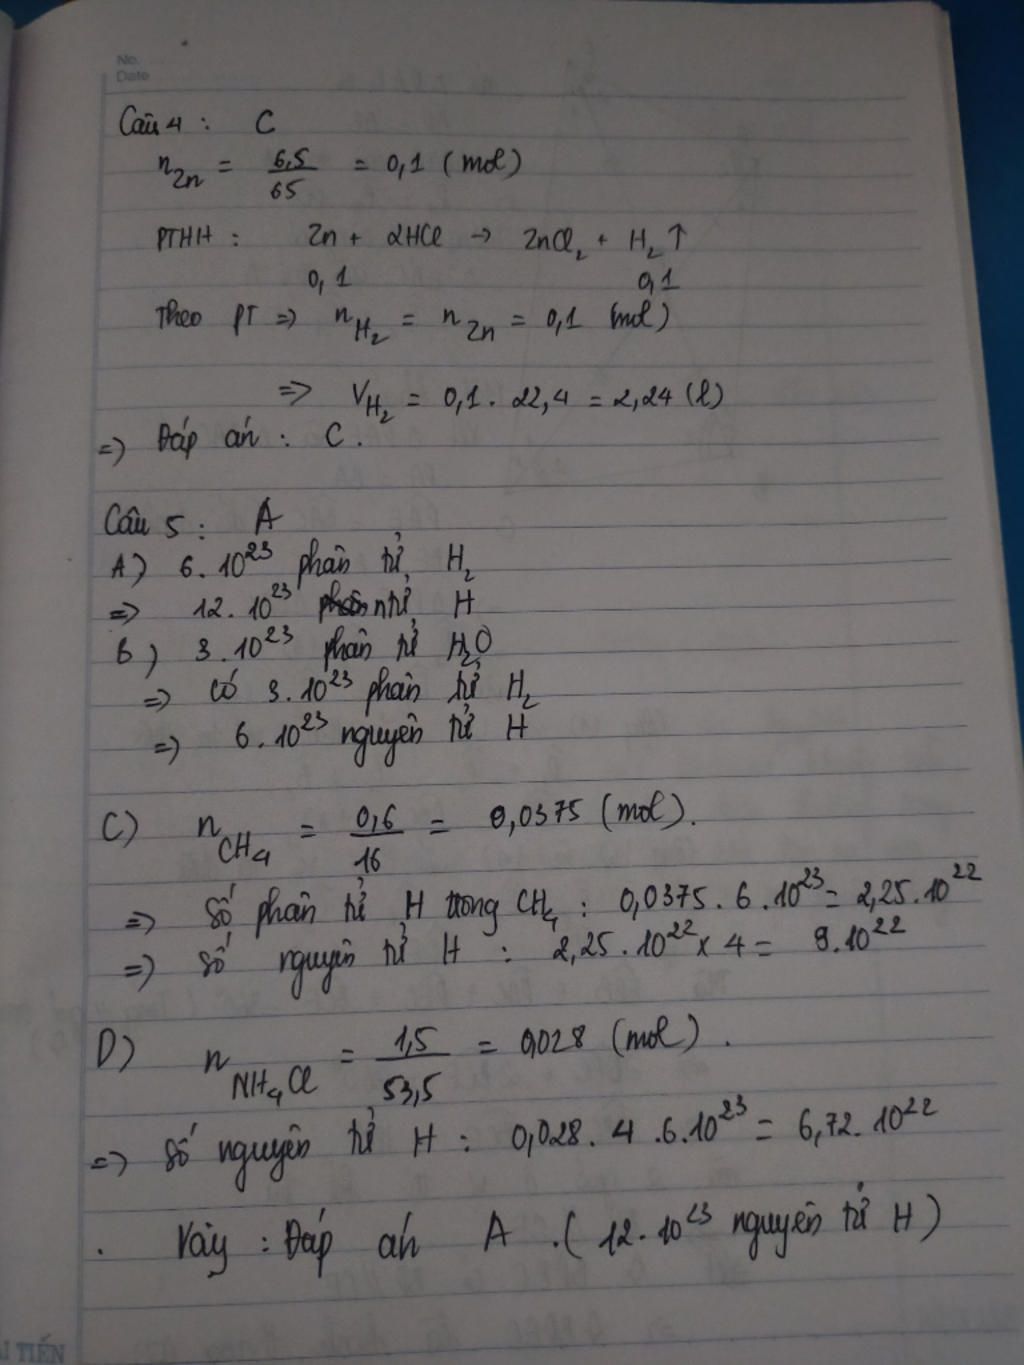 No.
Date
Câu 4 : C
n Zn = 6,5 / 65 = 0,1 (mol)
PTHH : Zn + 2HCl → ZnCl₂ + H₂ ↑
0,1 0,1
Theo PT => n H₂ = n Zn = 0,1 (mol)
=> V H₂ = 0,1 . 22,4 = 2,24 (l)
=> Đáp án : C .
Câu 5 : A
A) 6.10²³ phân tử H₂
=> 12.10²³ tử H
B) 3.10²³ phân tử H₂O
=> có 3.10²³ phân tử H₂
=> 6.10²³ nguyên tử H
C) n CH₄ = 0,6 / 16 = 0,0375 (mol).
=> Số phân tử H trong CH₄ : 0,0375 . 6 . 10²³ = 2,25.10²²
=> Số nguyên tử H : 2,25.10²² x 4 = 9.10²²
D) n NH₄Cl = 1,5 / 53,5 = 0,028 (mol) .
=> Số nguyên tử H : 0,028 . 4 . 6.10²³ = 6,72.10²²
. Vậy : Đáp án A . ( 12.10²³ nguyên tử H )
TIẾN